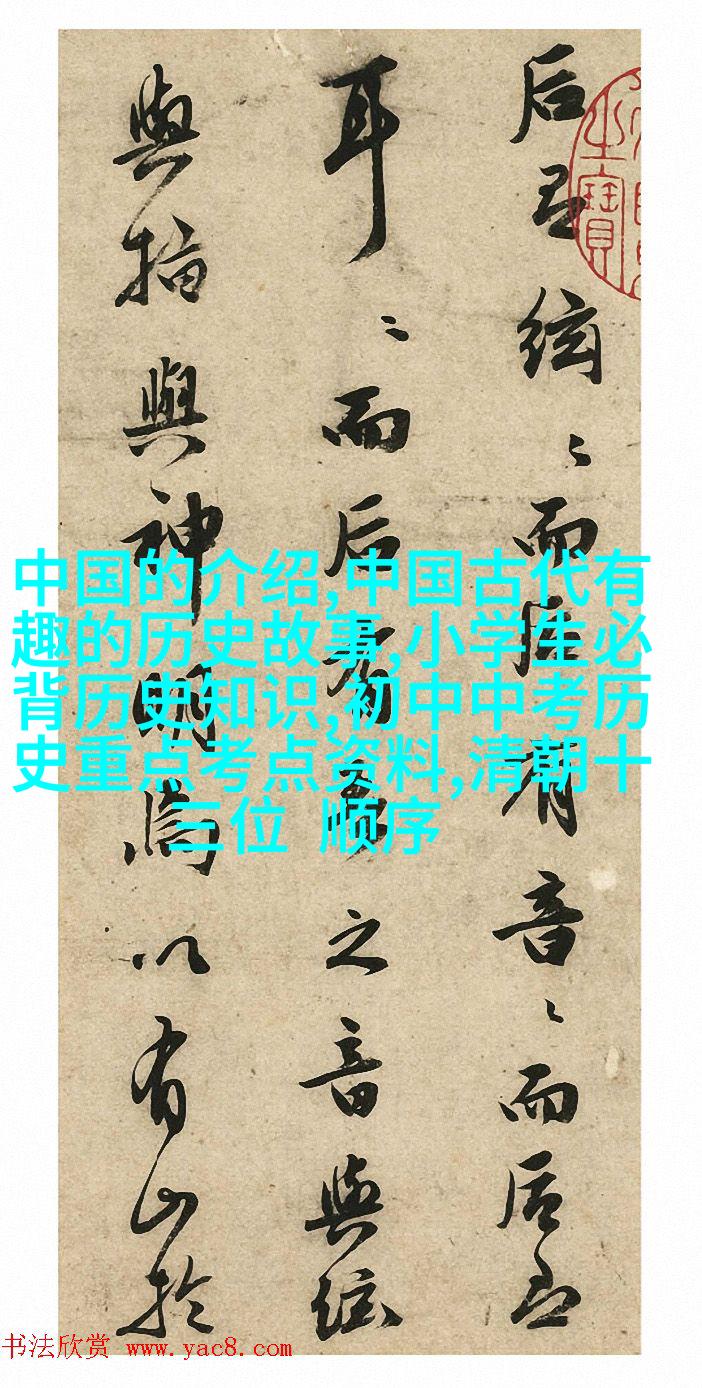 后絃〻而后有音〻而后
耳〻而后有之音與絃
與指與神明為以有山於
中国的介绍,中国古代有
趣的历史故事,小学生必
背历史知识,初中中考历
史重点考点资料,清朝十
三位 顺序
书法欣赏 www.yac8.com